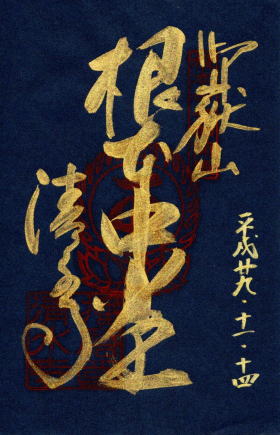 御嶽山
平成廿九・十一・十四
根本中堂
清水寺